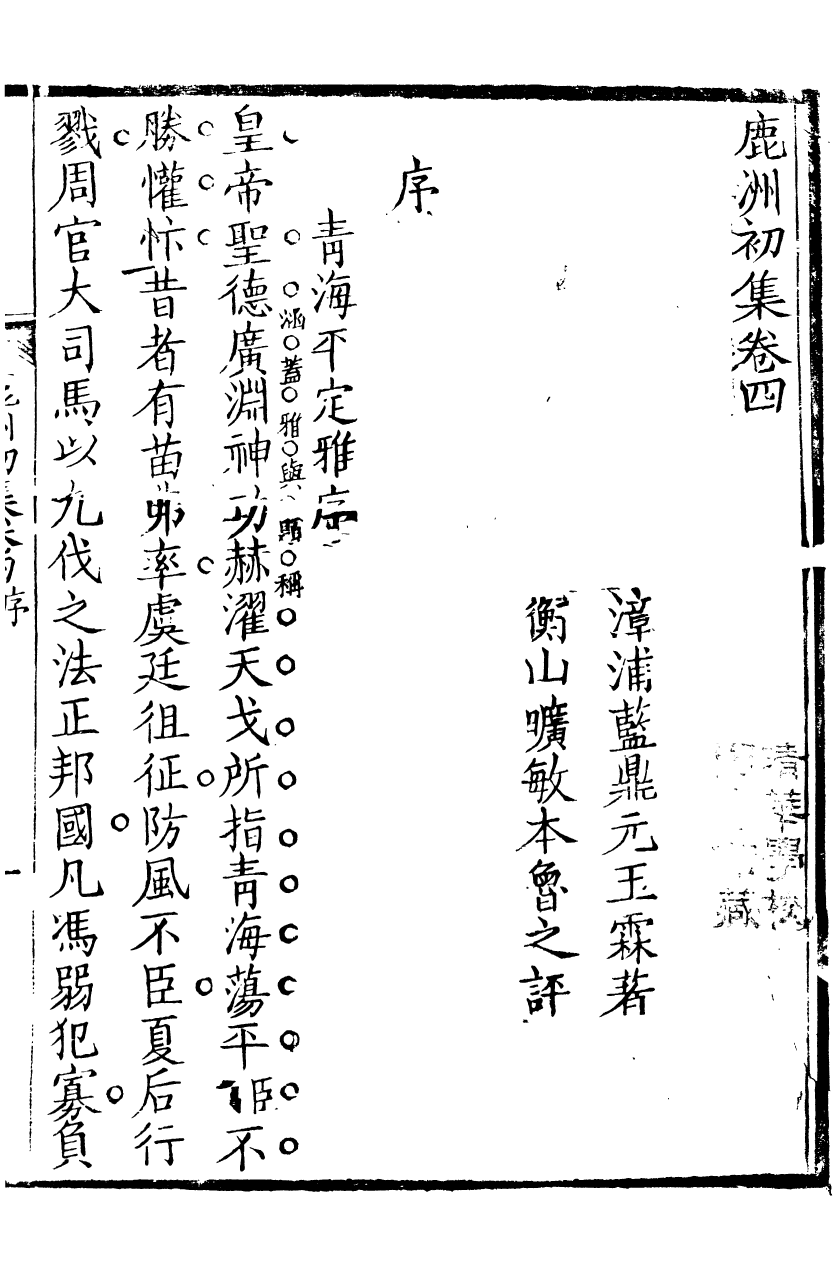 鹿洲初集卷四
漳浦藍鼎元玉霖著
衡山曠敏本魯之評
序
青海平定雅序
涵蓋雅與題稱
皇帝聖德廣淵神功赫濯天戈所指青海蕩平臣不
勝懽忭昔者有苗弗率虞廷徂征防風不臣夏后行
戮周官大司馬以九伐之法正邦國凡馮弱犯寡負